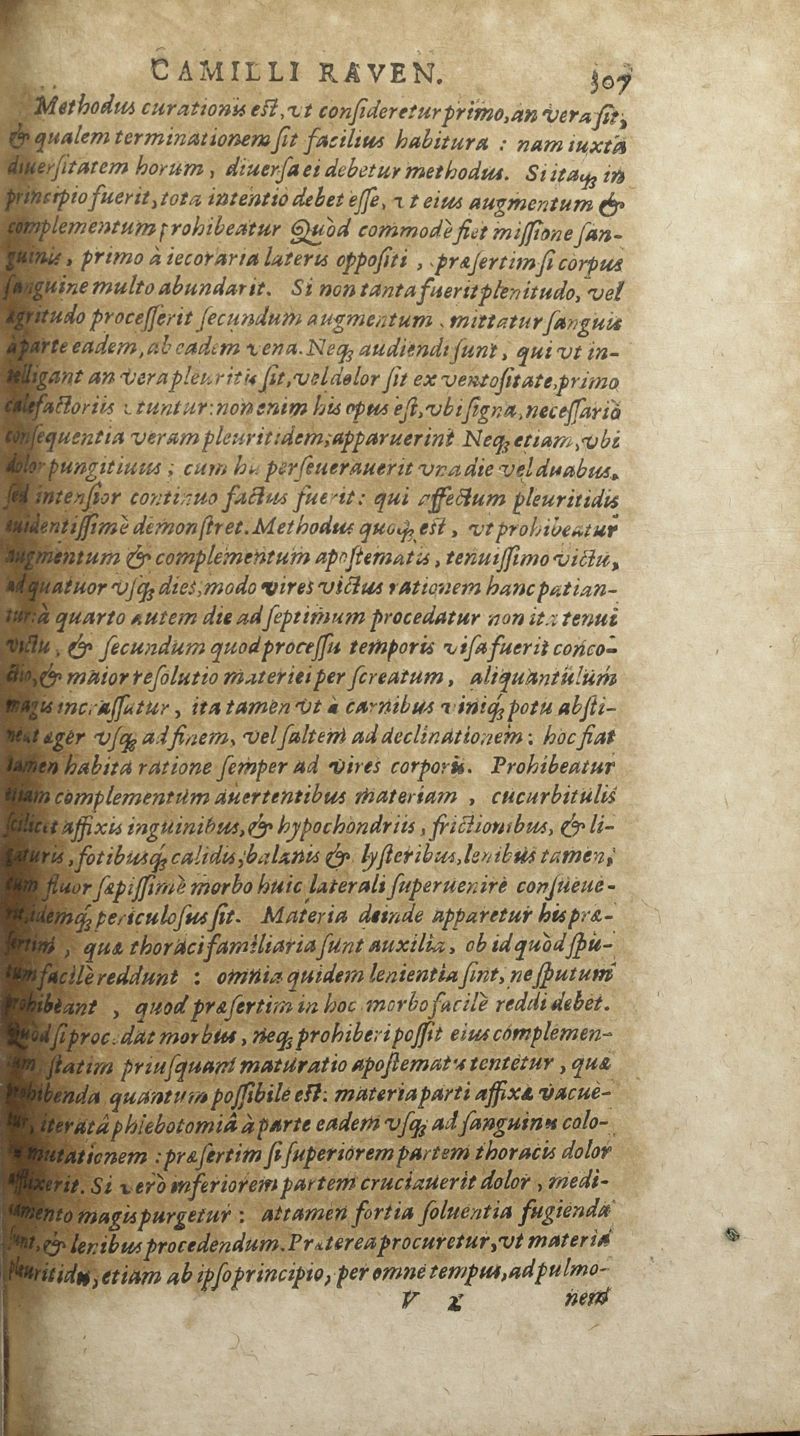 CAMILLI RAVEN. 307
Methodus curationis est, vt consideretur primo, an vera sit,
& qualem terminationem sit facilius habitura : nam iuxta
diuersitatem horum, diuersa ei debetur methodus. Si itaq; in
principio fuerit, tota intentio debet esse, vt eius augmentum &
complementum prohibeatur Quod commodè fiet missione san-
guinis, primo à iecoraria lateris oppositi, præsertim si corpus
sanguine multo abundarit. Si non tanta fuerit plenitudo, vel
ægritudo processerit secundum augmentum, mittatur sanguis
à parte eadem, ab eadem vena. Neq; audiendi sunt, qui vt in-
telligant an vera pleuritis sit, vel dolor sit ex ventositate, primo
calefactorijs vtuntur: non enim his opus est, vbi signa, necessariò
consequentia veram pleuritidem, apparuerint Neq; etiam, vbi
dolor pungitiuus ; cum hic perseuerauerit vna die vel duabus,
sed intensior continuo factus fuerit: qui affectum pleuritidis
euidentissimè demonstret. Methodus quoq; est, vt prohibeatur
augmentum & complementum apostematis, tenuissimo victu,
ad quatuor vsq; dies, modo vires victus rationem hanc patian-
tur: à quarto autem die ad septimum procedatur non ita tenui
victu, & secundum quod processu temporis visa fuerit conco-
ctio, & maior resolutio materiei per screatum, aliquantülùm
magis incrassatur, ita tamen vt à carnibus viniq; potu absti-
neat æger vsq; ad finem, vel saltem ad declinationem: hoc fiat
tamen habita ratione semper ad vires corporis. Prohibeatur
etiam complementum auertentibus materiam , cucurbitulis
scilicet affixis inguinibus, & hypochondriis, frictionibus, & li-
gaturis, fotibusq; calidis, balanis & lysteribus, lenibus tamen,
cum fluor sæpissimè morbo huic laterali superuenire consueue-
rit, idemq; periculosus sit. Materia deinde apparetur his præ-
sertim , quæ thoraci familiaria sunt auxilia, ob id quòd spu-
tum facilè reddunt : omnia quidem lenientia sint, ne sputum
prohibeant , quod præsertim in hoc morbo facilè reddi debet.
Quod si procedat morbus, neq; prohiberi possit eius complemen-
tum statim priusquam maturatio apostematis tentetur, quæ
prohibenda quantum possibile est: materia parti affixa vacue-
tur, iteratâ phlebotomiâ à parte eadem vsq; ad sanguinis colo-
ris mutationem : præsertim si superiorem partem thoracis dolor
afflixerit. Si verò inferiorem partem cruciauerit dolor, medi-
camento magis purgetur : attamen fortia soluentia fugienda
sunt, & lenibus procedendum. Prætereà procuretur, vt materia
pleuritidis, etiam ab ipso principio, per omne tempus, ad pulmo-
V 2 nem